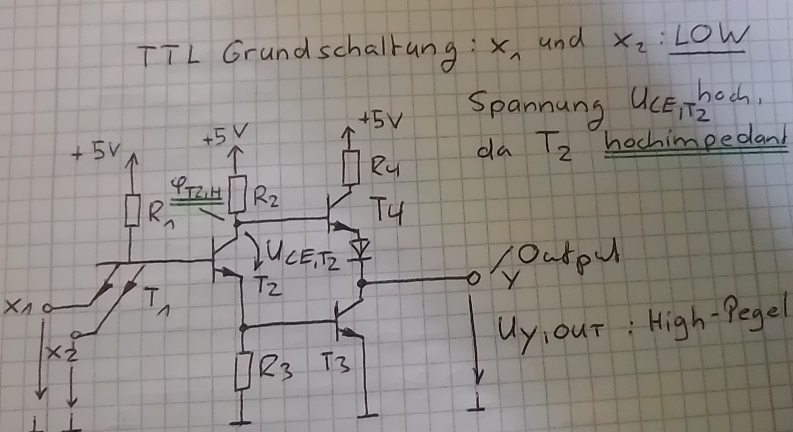 TTL Grundschaltung: x₁ und x₂: LOW
Spannung U_CE,T2 hoch,
da T₂ hochimpedant
+5V
+5V
+5V
R₁
φ_T2,H
R₂
R4
T4
U_CE,T2
T₂
Output
y
x1
T₁
x2
R3
T3
U_Y,OUT : High-Pegel